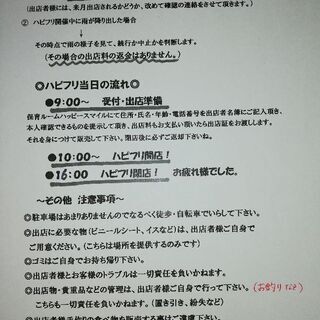 (出店者様には、来月出店されるかどうか、改めて確認の連絡をさせて頂きます。)
② ハピフリ開催中に雨が降り出した場合
その時点で雨の様子を見て、続行か中止かを判断します。
(その場合の出店料の返金はありません。)
◎ハピフリ当日の流れ◎
●9:00～ 受付・出店準備
保育ルームハッピースマイルにて住所・氏名・年齢・電話番号を出店者名簿にご記入頂き、
本人確認できるものを提示して頂き、出店料もお支払い頂いたら出店証をお渡しします。
それを身につけて販売して下さい。閉店後に必ずご返却下さいね。
●10:00～ ハピフリ開店!
●16:00 ハピフリ閉店! お疲れ様でした。
～その他 注意事項～
◎駐車場はあまりありませんのでなるべく徒歩・自転車でいらして下さい。
◎出店に必要な物(ビニールシート、イスなど)は、出店者様ご自身で
ご用意ください。(こちらは場所を提供するのみです)
◎ゴミはご自身でお持ち帰り下さい。
◎出店者様とお客様のトラブルは一切責任を負いかねます。
◎出店物・貴重品などの管理は、出店者様ご自身で行って下さい。(お釣りなど)
こちらも一切責任を負いかねます。(置き引き、紛失など)
◎出店者様手作りの食べ物を販売する事はご遠慮下さい。